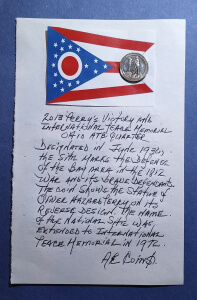 2013 PERRY'S VICTORY AND
INTERNATIONAL PEACE MEMORIAL
OHIO ATB QUARTER
DESIGNATED IN JUNE 1936,
THE SITE MARKS THE DEFENSE
OF THE BAY AREA IN THE 1812
WAR AND ITS BRAVE DEFENDANTS.
THE COIN SHOWS THE STATUE OF
OLIVER HAZARD PERRY ON ITS
REVERSE DESIGN. THE NAME
OF THE NATIONAL SITE WAS
EXTENDED TO INTERNATIONAL
PEACE MEMORIAL IN 1972.
AB COINS